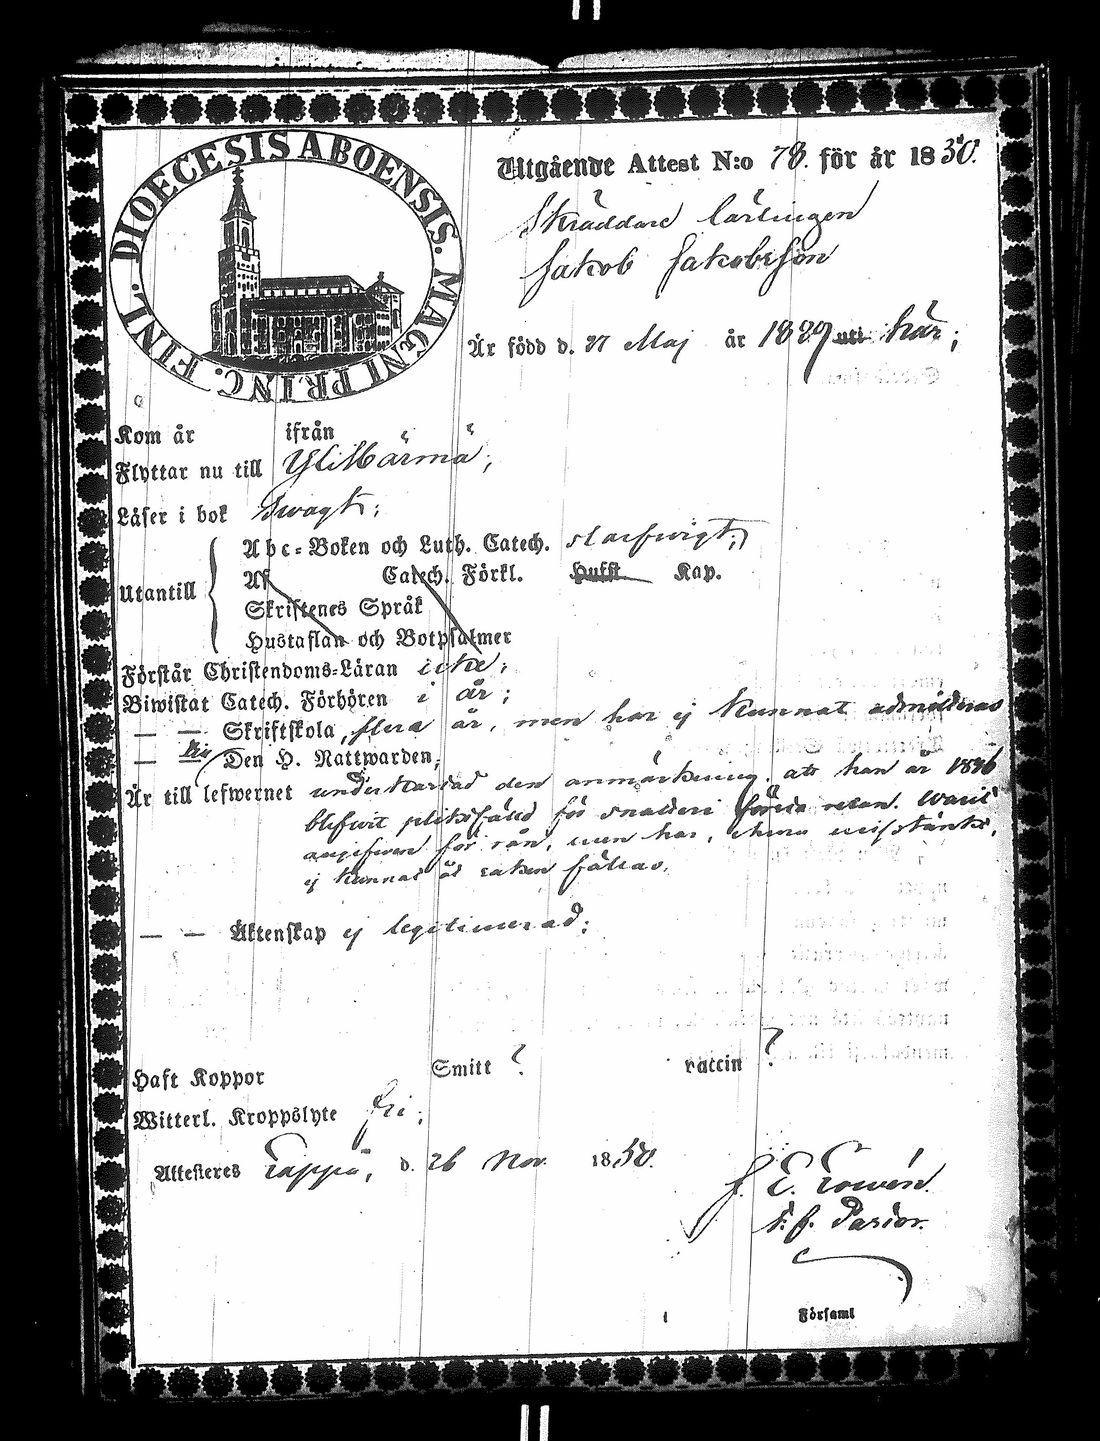 DIOECESIS ABOENSIS. MAGNI PRINC. FINL.
Utgående Attest N:o 78. för år 1850.
Skräddare Lärlingen
Jakob Jakobsson
Är född d. 27 Maj år 1829 uti här;
Kom år ifrån
Flyttar nu till YliHärmä;
Läser i bok Swagt;
Abc-Boken och Luth. Catech. slarfwigt;
Utantill Af Catech. Förkl. Hufst Kap.
Skriftenes Språk
Hustaflan och Botpsalmer
Förstår Christendoms-Läran icke;
Biwistat Catech. Förhören i år;
— — Skriftskola, flera år, men har ej kunnat admitteras
— Den H. Nattwarden,
Är till lefwernet den anmärkning, att han år 1846
blifwit pliktfälld för snatteri redan. Warit
angifwen för rån, men har, ehuru misstänkt,
ej kunnat åt saken fällas.
— — Äktenskap ej legitimerad;
Haft Koppor Smitt ? vaccin ?
Witterl. Kroppslyte fri;
Attesteras Lappo, d. 26 Nov. 1850.
J. E.
v. Pastor.
Församl